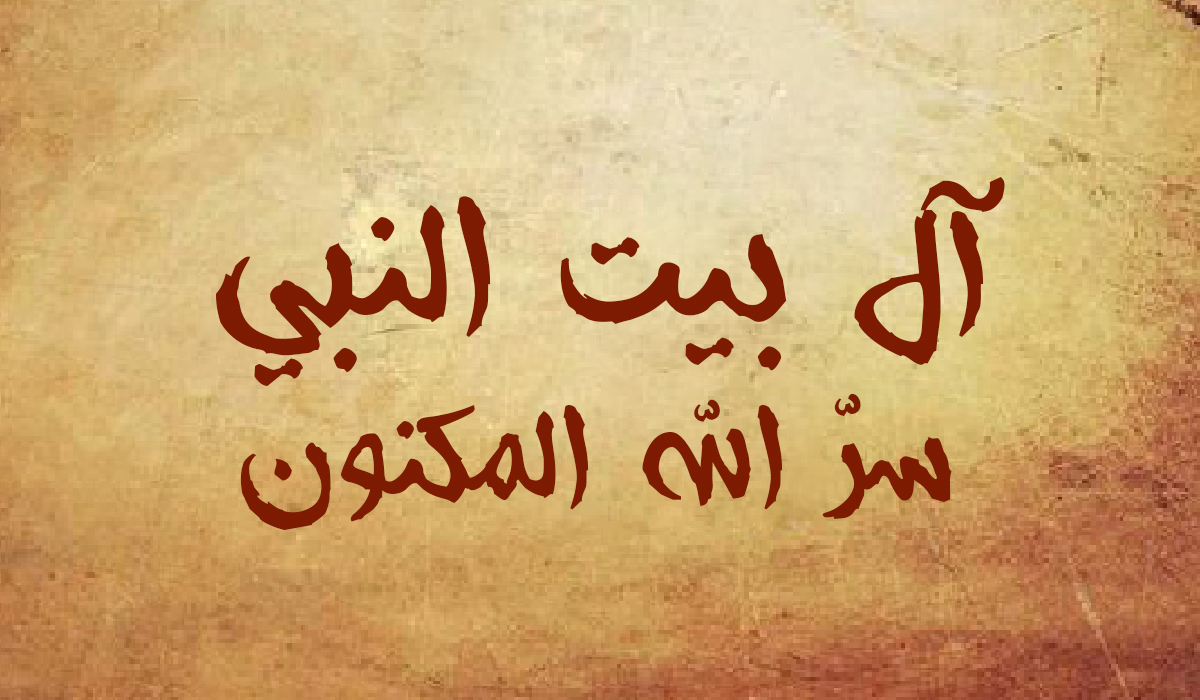 آل بيت النبي
سرّ الله المكنون